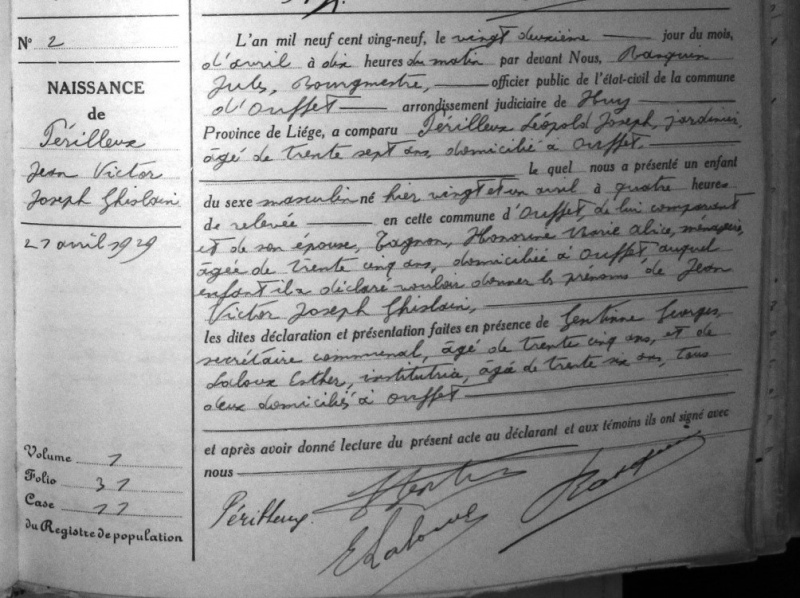 N° 2
NAISSANCE
de
Périlleux
Jean Victor
Joseph Ghislain
21 avril 1929
Volume 1
Folio 31
Case 11
du Registre de population
L'an mil neuf cent ving-neuf, le vingt deuxième jour du mois,
d'avril à dix heures du matin par devant Nous, Ranquin
Jules, Bourgmestre, officier public de l'état-civil de la commune
d'Ouffet arrondissement judiciaire de Huy
Province de Liége, a comparu Périlleux Léopold Joseph, jardinier,
âgé de trente sept ans, domicilié à Ouffet.
le quel nous a présenté un enfant
du sexe masculin né hier vingt et un avril à quatre heures
de relevée en cette commune d'Ouffet, de lui comparant
et de son épouse, Tagnon, Honorine Marie Alice, ménagère,
âgée de trente cinq ans, domiciliée à Ouffet auquel
enfant il a déclaré vouloir donner les prénoms de Jean
Victor Joseph Ghislain,
les dites déclaration et présentation faites en présence de Gentinne Georges,
secrétaire communal, âgé de trente cinq ans, et de
Laloux Esther, institutrice, âgée de trente six ans, tous
deux domiciliés à Ouffet
et après avoir donné lecture du présent acte au déclarant et aux témoins ils ont signé avec
nous
Périlleux
E Laloux
Ranquin